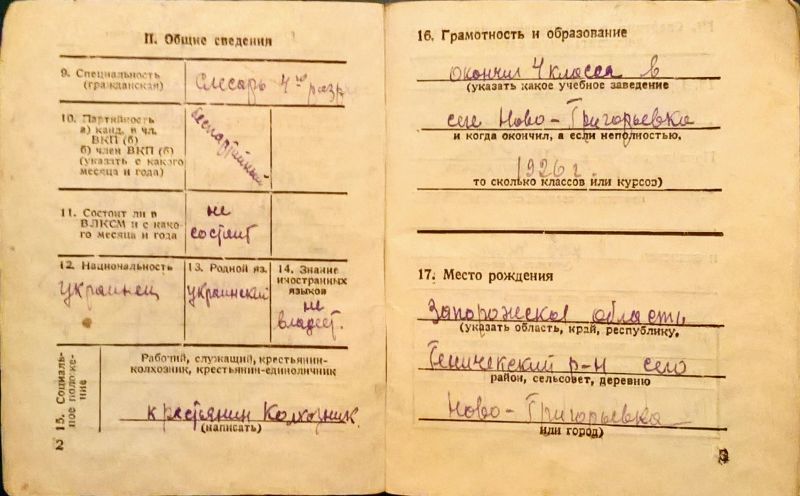 II. Общие сведения
9. Специальность
(гражданская)
Слесарь 4го разр
10. Партийность
а) канд. в чл.
ВКП (б)
б) член ВКП (б)
(указать с какого
месяца и года)
Беспартейный
11. Состоит ли в
ВЛКСМ и с како-
го месяца и года
не
состоит
12. Национальность
украинец
13. Родной яз.
украинский
14. Знание
иностранных
языков
не
владеет.
15. Социаль-
ное положе-
ние
Рабочий, служащий, крестьянин-
колхозник, крестьянин-единоличник
крестьянин Колхозник
(написать)
2
16. Грамотность и образование
окончил 4 класса в
(указать какое учебное заведение
селе Ново-Григорьевка
и когда окончил, а если неполностью,
1926 г.
то сколько классов или курсов)
17. Место рождения
Запорожская область
(указать область, край, республику,
Геническский р-н село
район, сельсовет, деревню
Ново-Григорьевка
или город)
3